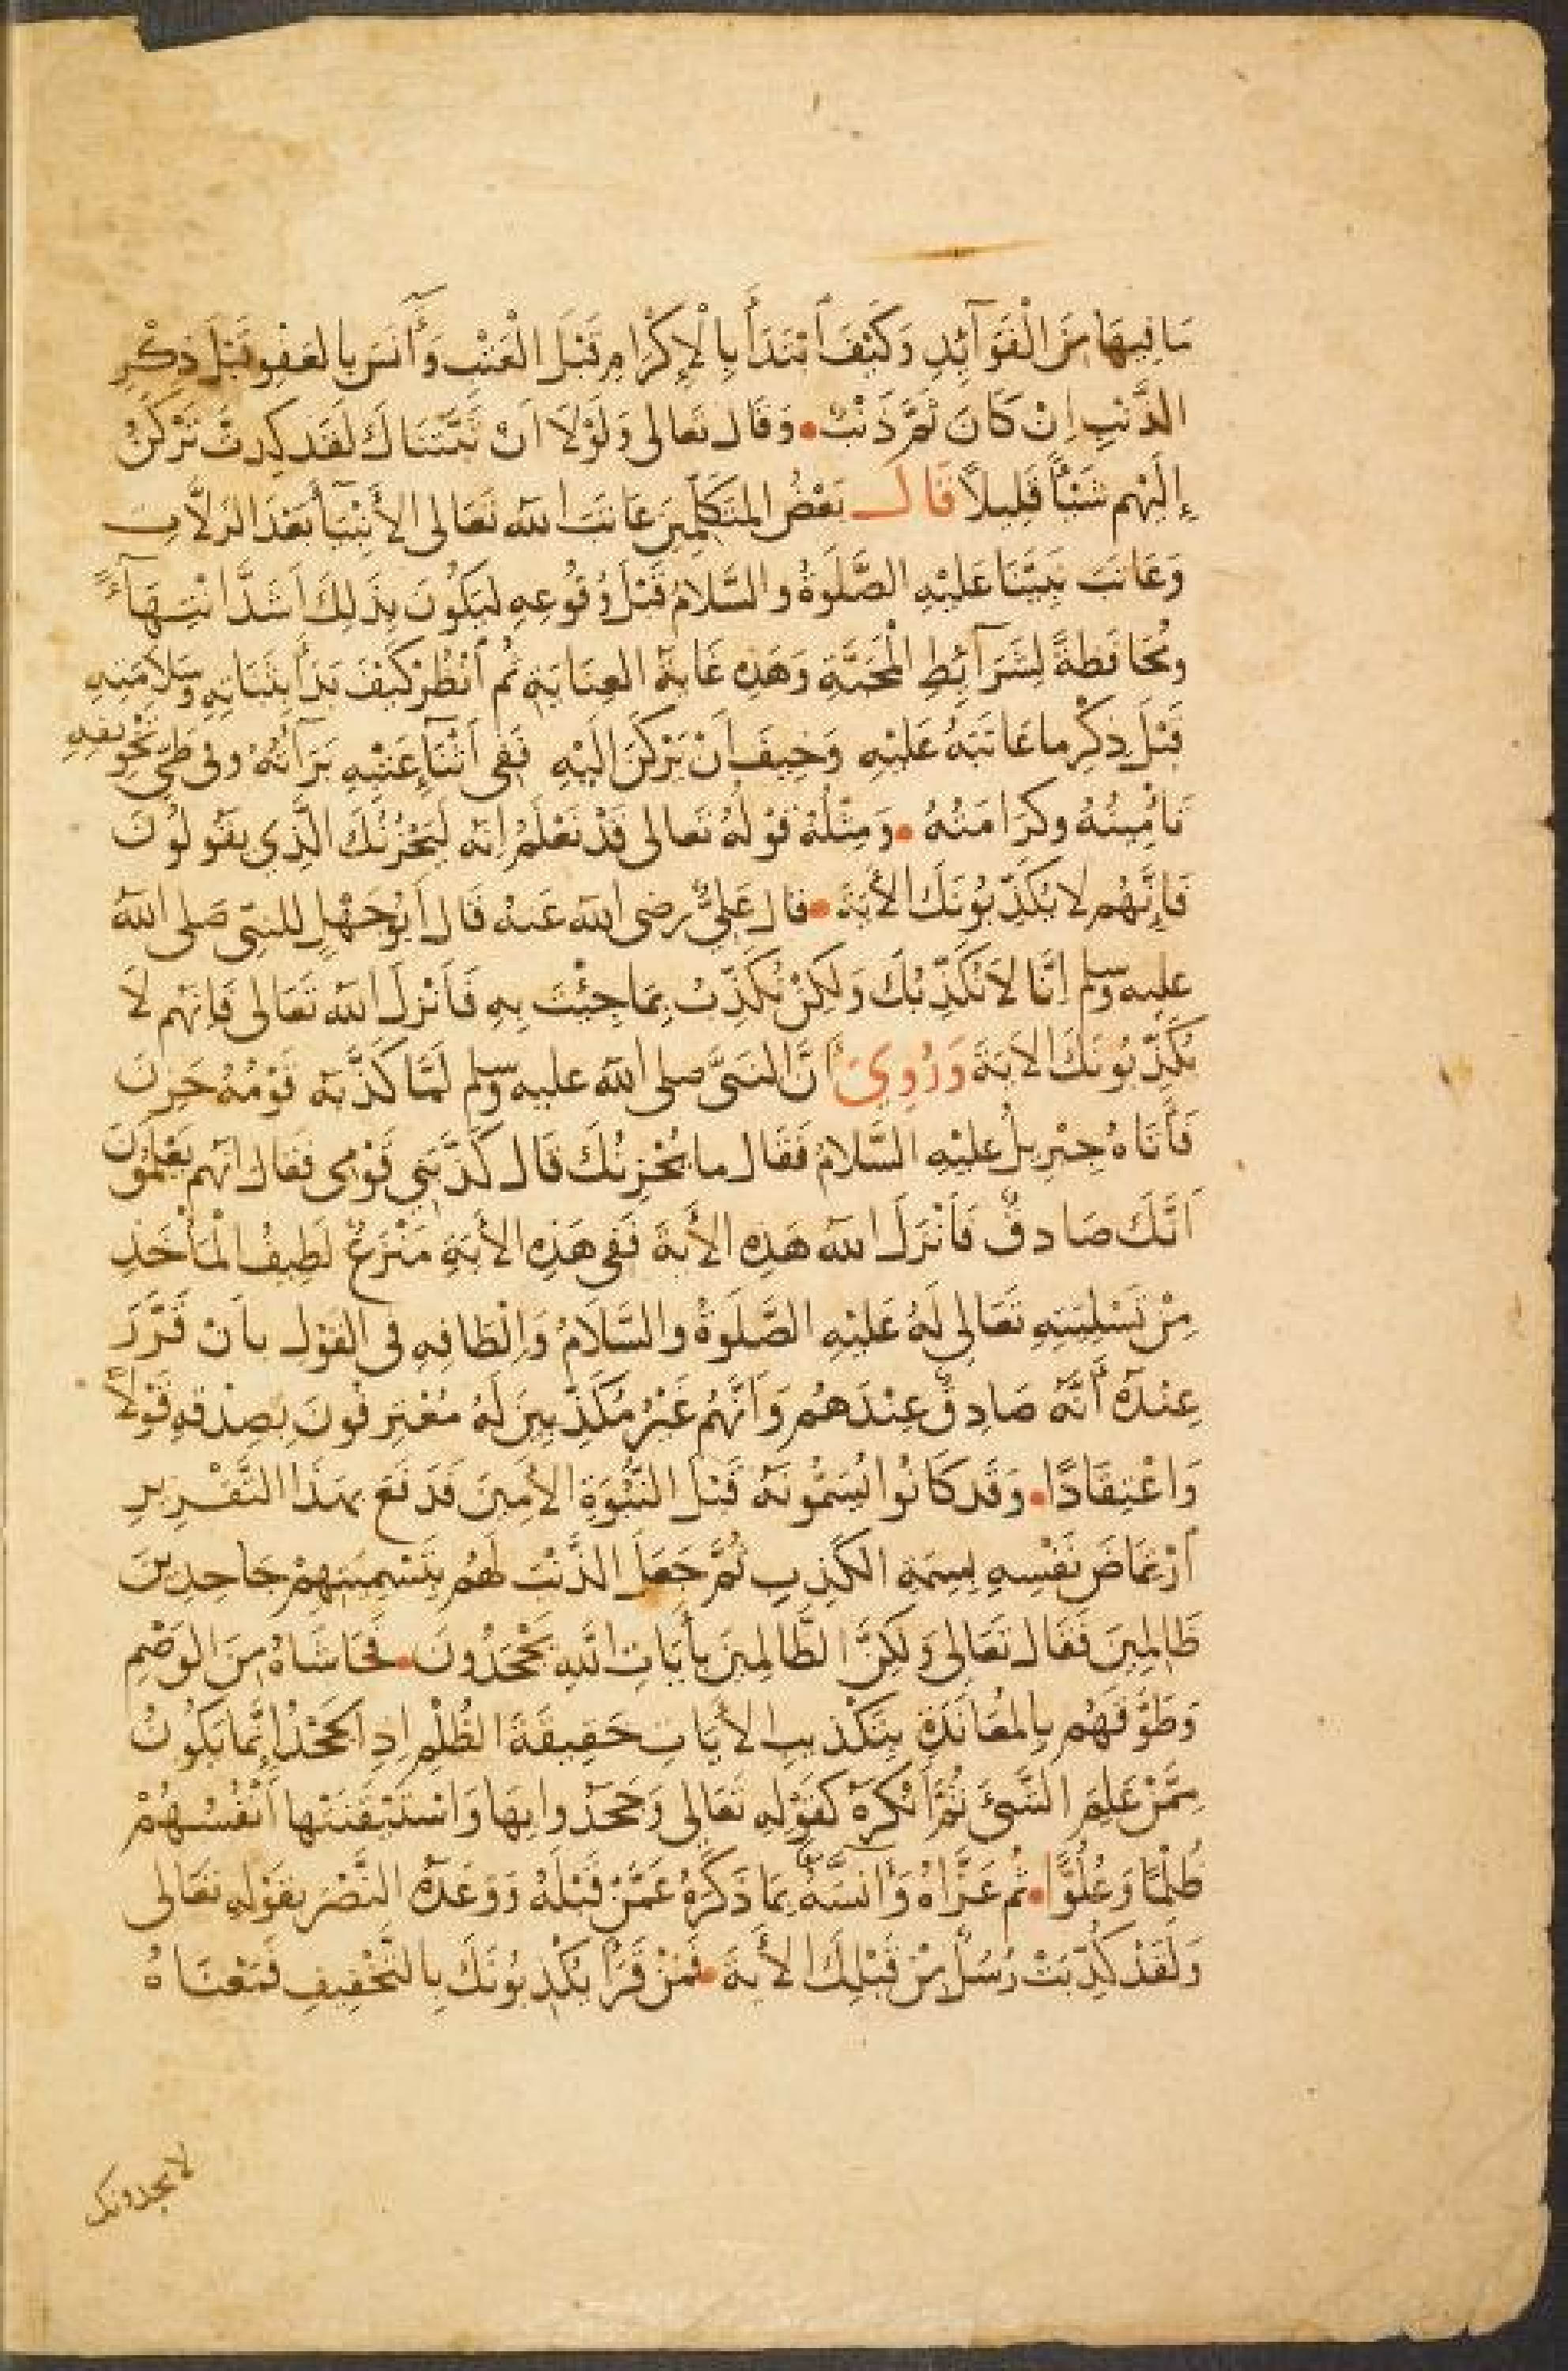 مَا فِيهَا مِنَ الْفَوَآئِدِ وَكَيْفَ اَبْتَدَأَ بِالْإِكْرَامِ قَبْلَ الْعَتْبِ وَآنَسَ بِالعَفْوِ قَبْلَ ذِكْرِ
الذَّنْبِ اِنْ كَانَ ثَمَّ ذَنْبٌ • وَقَالَ تَعَالى وَلَوْلَا اَنْ ثَبَّتْنَاكَ لَقَد كِدتَّ تَرْكَنُ
إِلَيْهِم شَيْئًا قَلِيلًا قَالَ بَعْضُ المتَكَلِّمِينَ عَاتَبَ اللّٰه تَعَالى الأَنْبِيَآءَ بَعْدَ الزَلَّاتِ
وَعَاتَبَ نَبِيَّنَا عَلَيْهِ الصَّلَوةُ والسَّلامُ قَبْلَ وُقُوعِهِ لِيَكُونَ بِذَلِكَ اَشَدَّ انْتِهَآءً
ومُحَافَظَةً لِشَرَآئِطِ الْمَحَبَّةِ وَهَذِهِ غَايَةُ العِنَايَةِ ثُم اَنْظُرْ كَيْفَ بَدَأَ بِثَبَاتِهِ وسَلَامَتِهِ
قَبْلَ ذِكْرِ ما عَاتَبَهُ عَلَيْهِ وَخِيفَ اَنْ يَرْكَنَ اِلَيْهِ فَفِى اَثْنَآءِ عَتْبِهِ بَرَآءَتُهُ وفى طَيِّ تَخْوِيفِهِ
تَامْينُهُ وكَرَامَتُهُ • وَمِثْلُهُ قَوْلُهُ تَعالى قَدْ نَعْلَمُ اِنَّه لَيَحْزُنُكَ الَّذِي يَقُولُونَ
فَاِنَّهُم لا يُكَذِّبُونَكَ الأيَةَ • قال عَلِيٌّ رضى اللّٰه عَنهُ قَالَ اَبُو جَهْلٍ للنبِّى صَلى اللّٰه
عليه وسلم اِنَّا لَا نُكَذِّبُكَ وَلَكِنْ نُكَذِّبُ بِمَا جِئْتَ بِهِ فَاَنْزَلَ اللّٰه تَعَالى فَاِنَّهُم لَا
يُكَذِّبُونَكَ الاَيَةَ وَرُوِيَ اَنَّ النبَىَّ صلى اللّٰه عليه وسلم لَمَّا كَذَّبَه قَوْمُهُ حَزِنَ
فَأَتَاهُ جِبْرِيلُ عَلَيْهِ السَّلامُ فَقَال ما يُحْزِنُكَ قَال كَذَّبَنِي قَوْمِى فقَال اِنَّهم يَعْلَمُونَ
اَنَّكَ صَادِقٌ فَاَنْزَلَ اللّٰه هَذِهِ الأَيةَ فَفِى هَذِهِ الأَيَةِ مَنْزَعٌ لَطِيفُ الْمَأْخَذِ
مِنْ تَسْلِيَتِهِ تَعَالى لَهُ عَلَيْهِ الصَّلَوةُ والسَّلَامُ وَاِلْطَافِهِ فى القَوْلِ بِاَنْ قَرَّرَ
عِنْدَهُ أَنَّهُ صَادِقٌ عِنْدَهُم وَاَنَّهُم غَيْرُ مُكَذِّبِينَ لَهُ مُعْتِرفُونَ بِصِدْقِهِ قَوْلًا
وَاعْتِقَادًا • وَقَد كَانُوا يُسَمُّونَهُ قَبْلَ النُّبُوَةِ الأَمِينَ فَدَفَعَ بِهَذَا التَّقْرِيرِ
اَرْتِمَاضَ نَفْسِهِ بِسِمَةِ الكَذِبِ ثُمَّ جَعَلَ الذَّنْبَ لَهُم بِتَسْمِيَتِهِمْ جَاحِدِينَ
ظَالِمِينَ فَقَال تَعَالى وَلَكِنَّ الظَّالِمِينَ بأَيَاتِ اللَّهِ يَجْحَدُونَ • فَحَاشَاهُ مِنَ الوَصْمِ
وَطَوَّقَهُم بِالمُعَانَدَةِ بِتَكْذِيبِ الأَيَاتِ حَقِيقَةَ الظُّلْمِ اِذ الجَحْدُ إِنَّمَا يَكُونُ
مِمَّنْ عَلِمَ الشَّىْءَ ثُمَّ اَنْكَرَهُ كقَوْلِهِ تَعَالى وَجَحَدُوا بِهَا وَاسْتَيْقَنَتْها اَنْفُسُهُمْ
ظُلْمًا وَعُلُوًّا • ثُم عَزَّاهُ وَآنَسَهُ بِمَا ذَكَرَهُ عَمَّنْ قَبْلَهُ وَوَعَدَهُ النَّصْرَ بقَوْلِهِ تَعَالى
وَلَقَدْ كُذِّبَتْ رُسُلٌ مِنْ قَبْلِكَ الأَيَةَ • فَمَنْ قَرَأَ يُكْذِبُونَكَ بِالتَّخْفِيفِ فَمَعْنَاهُ
لا يجدونك